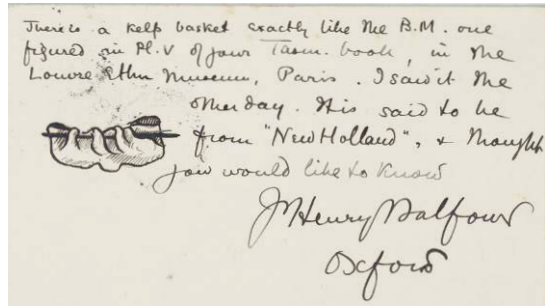 There is a kelp basket exactly like the B.M. one
figured in Pl. V of your Tasm. book, in the
Louvre Ethn Museum, Paris. I saw it the
other day. It is said to be
from "New Holland", & thought
you would like to know
Henry Balfour
Oxford